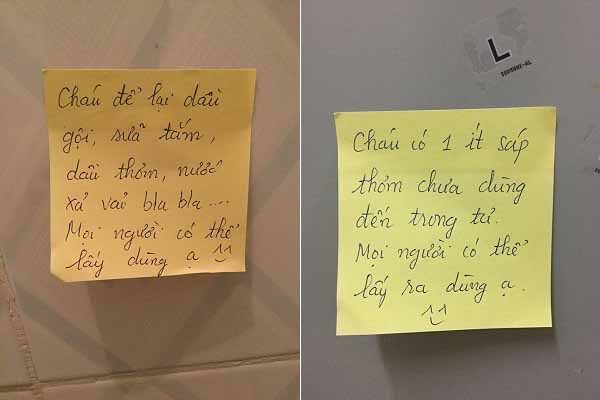 Cháu để lại dầu
gội, sữa tắm,
dầu thơm, nước
xả vải bla bla....
Mọi người có thể
lấy dùng ạ ^^
L
Cháu có 1 ít sáp
thơm chưa dùng
đến trong tủ.
Mọi người có thể
lấy ra dùng ạ.
^^